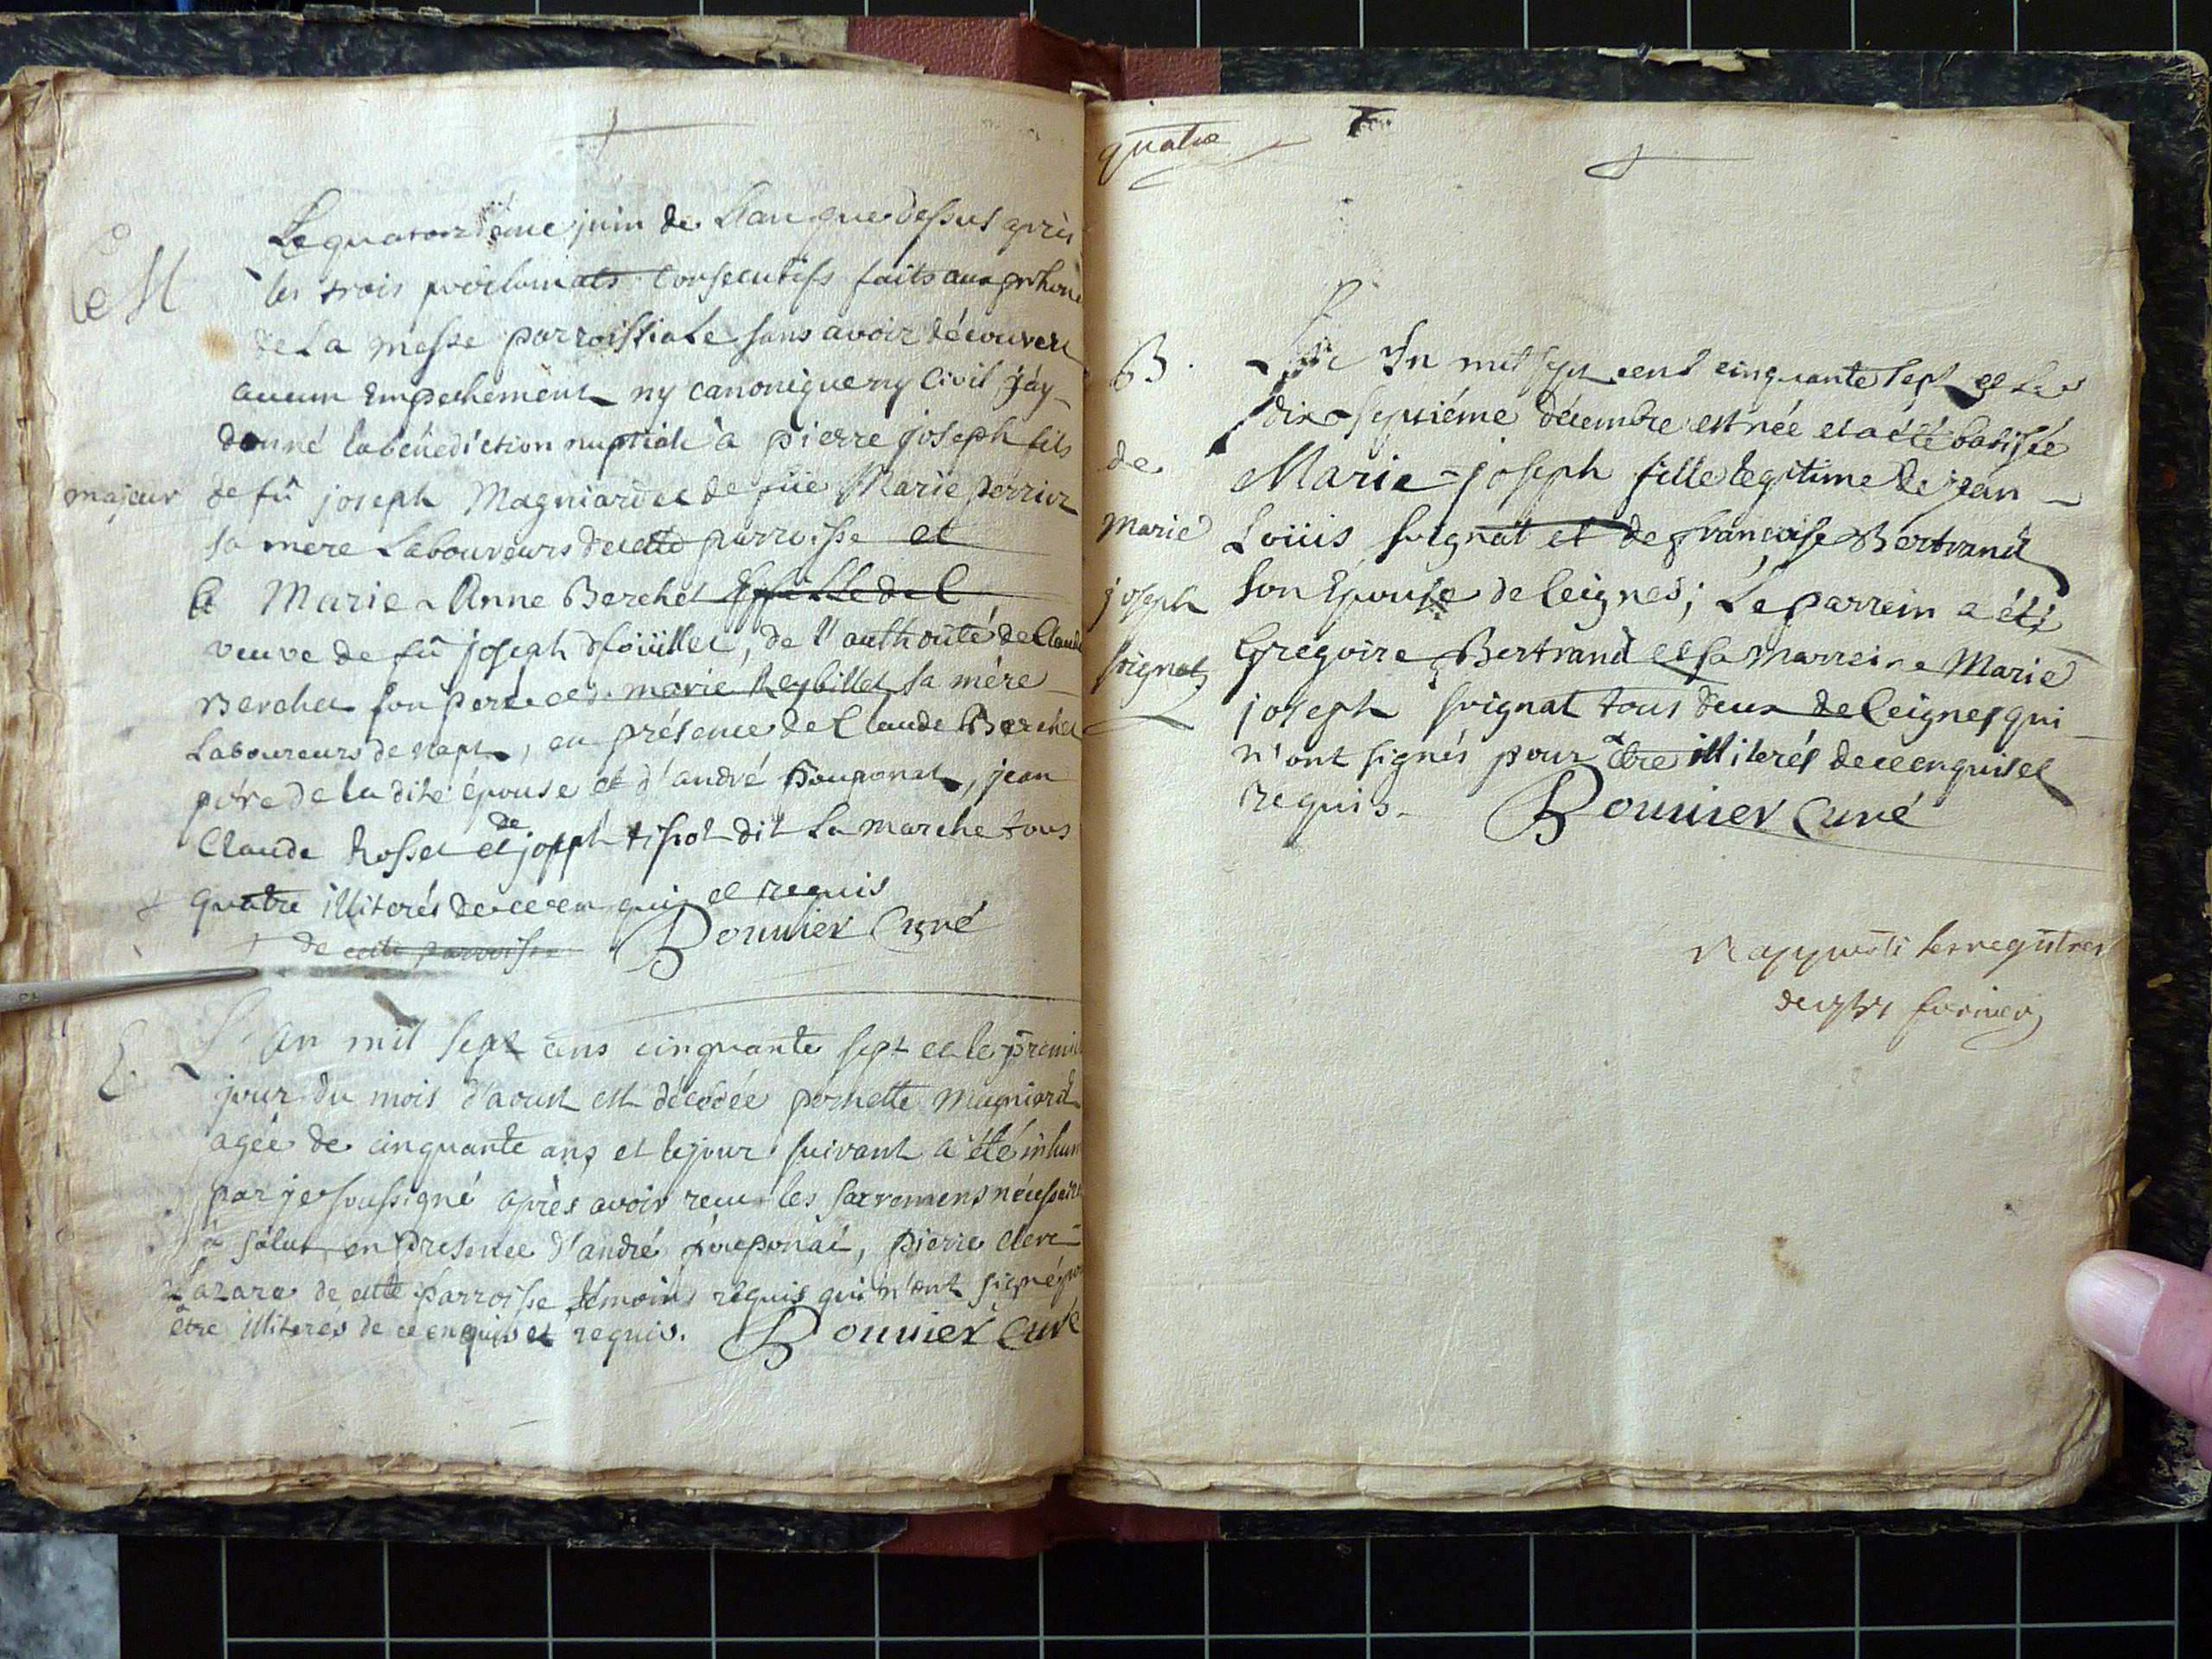 Le quatorzième juin de L'an que dessus après
M les trois proclamats consecutifs faits aux prhone
de La messe parroissiale sans avoir découvert
aucun Empechement ny canonique ny Civil j'ay
donné la bénédiction nuptiale à pierre joseph fils
majeur de fû joseph Magniard et de füe Marie perrier
sa mere Laboureurs de cette parroisse et
à Marie-Anne Berchet
veuve de fû joseph, de l'authorité de Claude
Berchet son pere et de marie Reybillet sa mère
Laboureurs de, en présence de Claude Berchet
père de la dite épouse et d'andré pouponat, jean
Claude Rosset et de joseph tissot dit La marche tous
quatre illiterés de ce enquis et requis
+ de cette parroisse Bouvier Curé
E. L'An mil sept cens cinquante sept et le premier
jour du mois d'aoust est décédée pernette magniard
agée de cinquante ans et le jour suivant a été inhum
par je soussigné après avoir recu les sacremens nécessaires
à salut en presence d'andré pouponat, pierre clerc
Lazare de cette parroisse témoins requis qui n'ont signé pour
être illiterés de ce enquis et requis. Bouvier Curé
quatre
B. L'An mil sept cent cinquante sept et le
dix-septiéme décembre est née et a été batisée
de Marie-joseph fille legitime de jean
marie Loüis soignat et de francoise Bertrand
joseph son Epouse de Ceignes; Le parrein a été
soignat Gregoire Bertrand et sa marreine Marie
joseph soignat tous deux de Ceignes qui
n'ont signés pour être illiterés de ce enquis et
requis. Bouvier Curé
Rapporté les registres